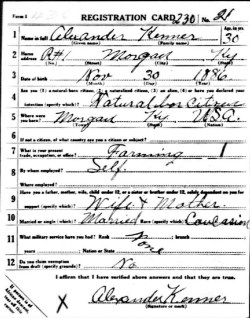 Form 1
REGISTRATION CARD 230 No. 21
1 Name in full Alexander Kenner Age, in yrs. 30
(Given name) (Family name)
2 Home address R#1 Morgan Ky
(No.) (Street) (City) (State)
3 Date of birth Nov 30 1886
(Month) (Day) (Year)
4 Are you (1) a natural-born citizen, (2) a naturalized citizen, (3) an alien, (4) or have you declared your
intention (specify which)? Natural born Citizen
5 Where were you born? Morgan Ky U.S.A.
(Town) (State) (Nation)
6 If not a citizen, of what country are you a citizen or subject?
7 What is your present trade, occupation, or office? Farming 1
8 By whom employed? Self
Where employed?
9 Have you a father, mother, wife, child under 12, or a sister or brother under 12, solely dependent on you for
support (specify which)? Wife & Mother
10 Married or single (which)? Married Race (specify which)? Caucasian
11 What military service have you had? Rank None ; branch
years ; Nation or State
12 Do you claim exemption from draft (specify grounds)? No
I affirm that I have verified above answers and that they are true.
X Alexander Kenner
(Signature or mark)